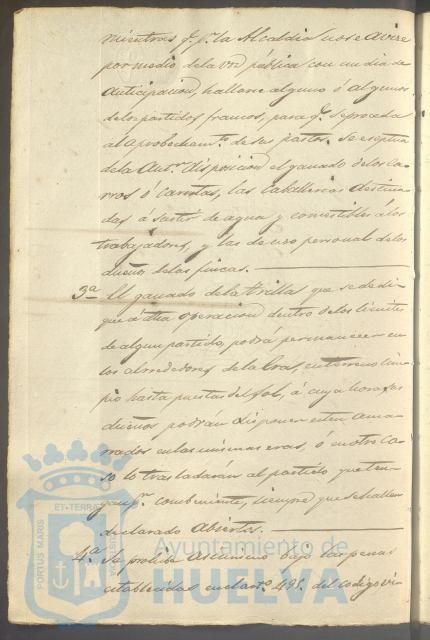 mientras q.e p.r la Alcaldia no se avise
por medio de la voz pública con un dia de
anticipacion, hallarse alguno ó algunos
de los partidos francos, para q.e se proceda
al aprobecham.to de sus pastos. Se eseptua
de la ant.r disposicion el ganado de los ca-
rros ó carretas, las caballerias destina-
das á surtir de agua y comestible á los
trabajadores, y las de uso personal de los
dueños de las fincas.
3.ª El ganado de la trilla que se dedi-
que á dha operacion dentro de los limites
de algun partido, podrá permanecer en
los alrededores de la Eras, en terreno lim-
pio hasta puestas del Sol, á cuya hora sus
dueños podrán disponer esten ama-
rrados en las mismas eras, ó en otro ca-
so lo trasladarán al partido que ten-
gan p.r combeniente, siempre que se hallen
declarado abiertos.
4.ª Se prohibe á cualquiera bajo las penas
establecidas en el art.o 495. del codigo vi-
PORTUS MARIS
ET TERRAE
Ayuntamiento de
HUELVA